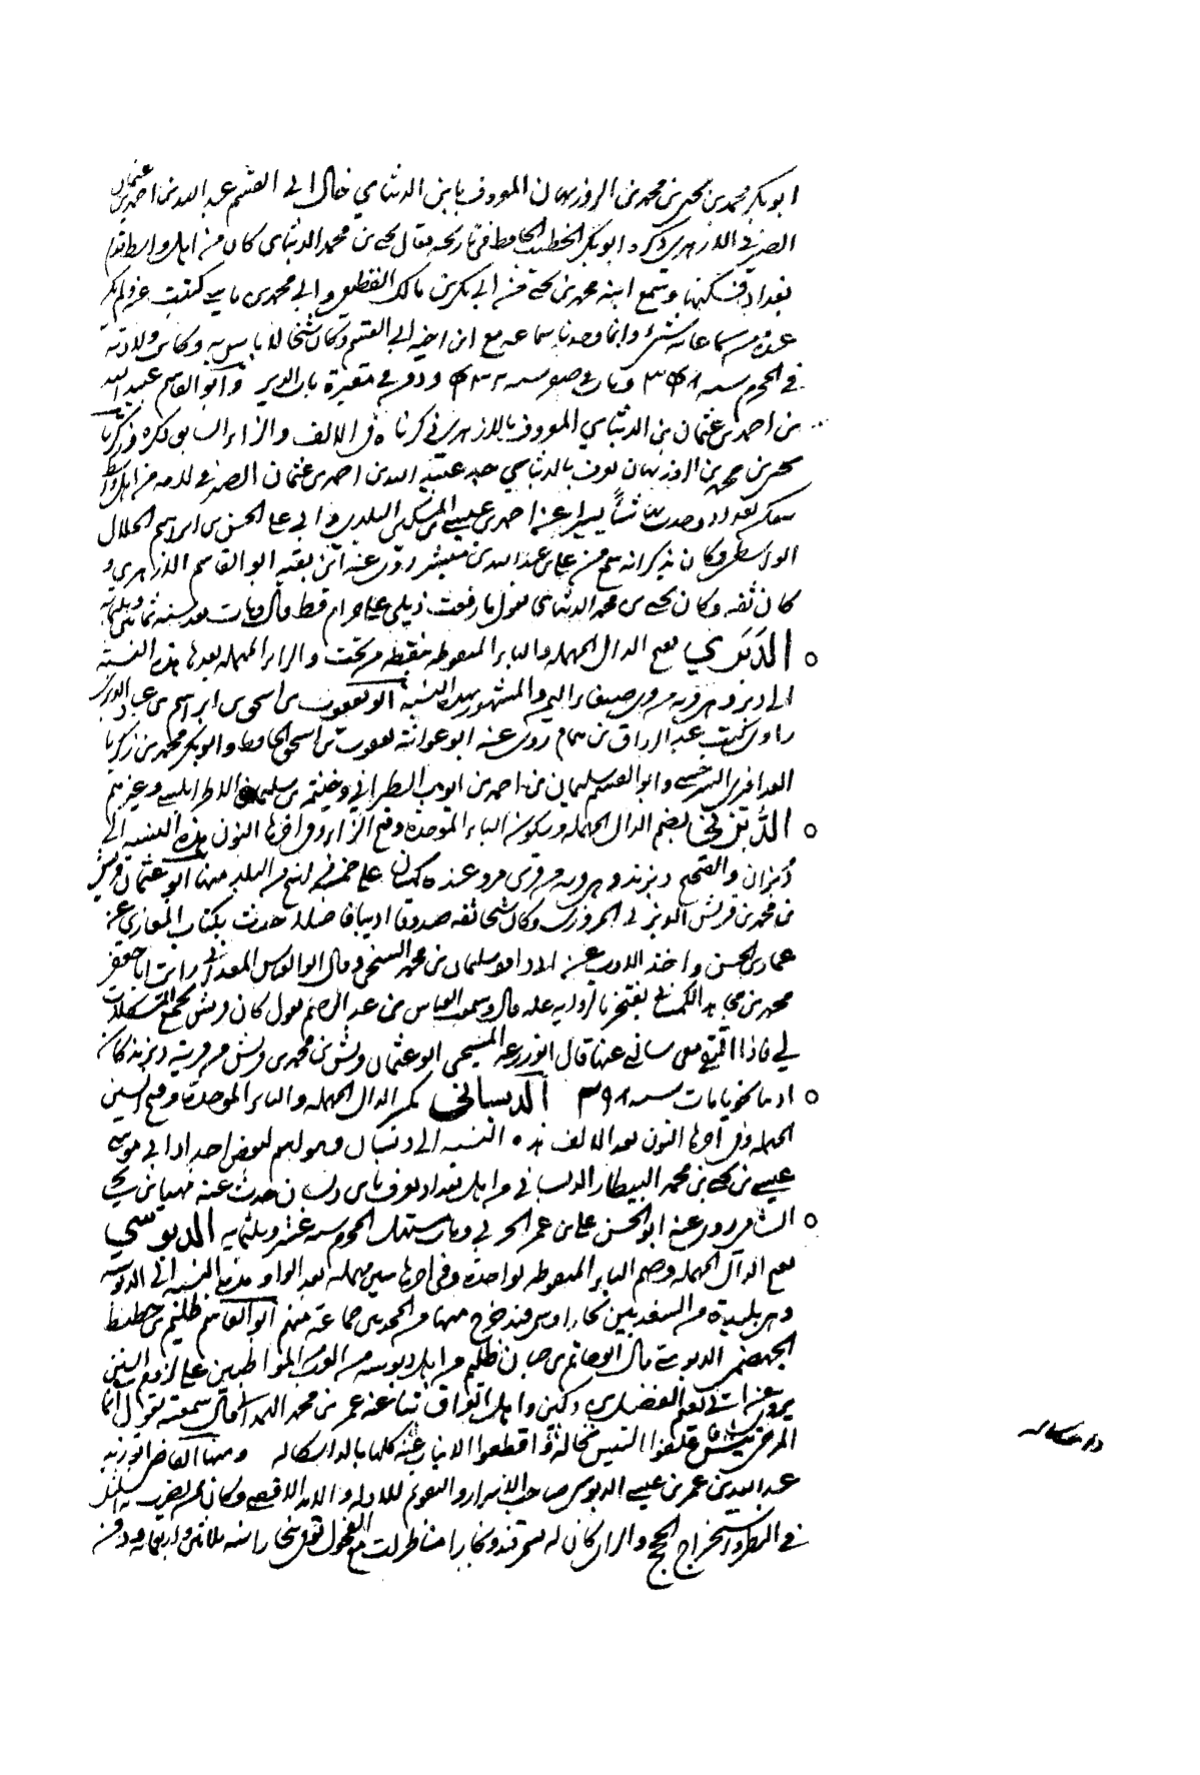 ابو بكر محمد بن يحيى بن محمد بن الروزبهان المعروف بابن الدبثاي خال ابي القسم عبيد الله بن احمد بن عثمان
الصيرفي الازهري ذكره ابو بكر الخطيب الحافظ في تاريخه فقال يحيى بن محمد الدبثاى كان من اهل واسط قدم
بغداد فسكنها وسمع ابنه محمد بن يحيى من ابي بكر بن مالك القطيعي وابي محمد بن ماسي كتبت عنه ولم يكن
عنده من سماعاته شئ وانما وجدنا سماعه مع ابن اخيه ابي القسم وكان شيخا لا باس به وكانت ولادته
في المحرم سنه ومات في صفر سنه ودفن في مقبرة باب الدير وابو القاسم عبيد الله
بن احمد بن عثمان بن الدبثاي المعروف بالازهري ذكرناه في الالف والزاء السابق ذكره
يحيى بن محمد بن الروزبهان يعرف بالدبثاي جد عبيد الله بن احمد بن عثمان الصيرفي لامه من اهل واسط
سكن بغداد وحدث بها شيأ يسيرا عن احمد بن عيسى بن السكين البلدي وابي علي الحسن بن ابراهيم الخلال
الواسطي وكان يذكر انه سمع من علي بن عبد الله بن مبشر روى عنه ابن بنته ابو القاسم الازهري و
كان ثقه وكان يحيى بن محمد الدبثاى يقول ما رفعت ذيلي على حرام قط قال ومات بعد سنه ثمانين وثلثمايه
الدَبَري بفتح الدال المهمله والباء المنقوطه بنقطه من تحت والراء المهمله بعدها هذه النسبة
الى دبر وهي قريه من قرى صنعاء اليمن والمشهور بهذه النسبة ابو يعقوب اسحق بن ابراهيم بن عباد الدبري
راوى كتب عبد الرزاق بن همام روى عنه ابو عوانة يعقوب بن اسحق الحافظ وابو بكر محمد بن زكريا
العذافرى السرخسي وابو القسم سليمان بن احمد بن ايوب الطبراني وخيثمه بن سليمان الاطرابلسي وغيرهم
الدُّبْزَني بضم الدال المهمله وسكون الباء الموحدة وفتح الزاء وفي اخرها النون هذه النسبه الى
دبزان والصحيح دبزند وهي قريه من قرى مرو عند كمسان على خمسة فراسخ من البلد منها ابو عثمان قريش
بن محمد بن قريش الدبزني المروزى وكان شيخا ثقه صدوقا اديبا فاضلا حدث بكتاب المغازي عن
عمار بن الحسن واخذ الادب عن ابي داود سليمان بن محمد السنجي وقال ابو العباس المعداني رايت ابا جعفر
محمد بن مجاهد يفتخر بالروايه عنه قال وسمعت العباس بن عبد الرحيم يقول كان قريش يجمع المشكلات
لي فاذا التقى معي سالني عنها قال ابو زرعه السنجي ابو عثمان قريش بن محمد بن قريش من قرية دبزند كان
اديبا نحويا مات سنه الدبساني بكسر الدال المهمله والباء الموحدة وفتح السين
المهمله وفى اخرها النون بعد الالف هذه النسبه الى دبسان وهو اسم لبعض اجداد ابي موسى
عيسى بن يحيى بن محمد البيطار الدبساني من اهل بغداد يعرف بابن دبسان حدث عنه مهنا بن يحيى
الشامي روى عنه ابو الحسن علي بن عمر الحربي ومات مستهل المحرم سنه عشر وثلثمايه الدبوسي
بفتح الدال المهمله وضم الباء المنقوطه بواحدة وفى اخرها سين مهمله بعد الواو هذه النسبه الى الدبوسه
وهي بليدة من السغد بين بخارا وسمرقند خرج منها من المحدثين جماعة منهم ابو القاسم ظليم بن حطيط
الجهضمي الدبوسي قال ابو حاتم بن حبان ظليم من اهل دبوسه من المواظبين على لزوم السنن
يروى عن ابي نعيم الفضل بن دكين واهل العراق ثنا عنه عمر بن محمد الهمداني قال سمعته يقول
ومنها القاضي ابو زيد
عبد الله بن عمر بن عيسى الدبوسي صاحب الاسرار والتقويم للادلة والامد الاقصى وكان ممن يضرب به المثل
في النظر واستخراج الحجج والراى كان له بسمرقند وبخارا مناظرات مع الفحول توفى ببخارا سنه ثلاثين واربعمايه ودفن